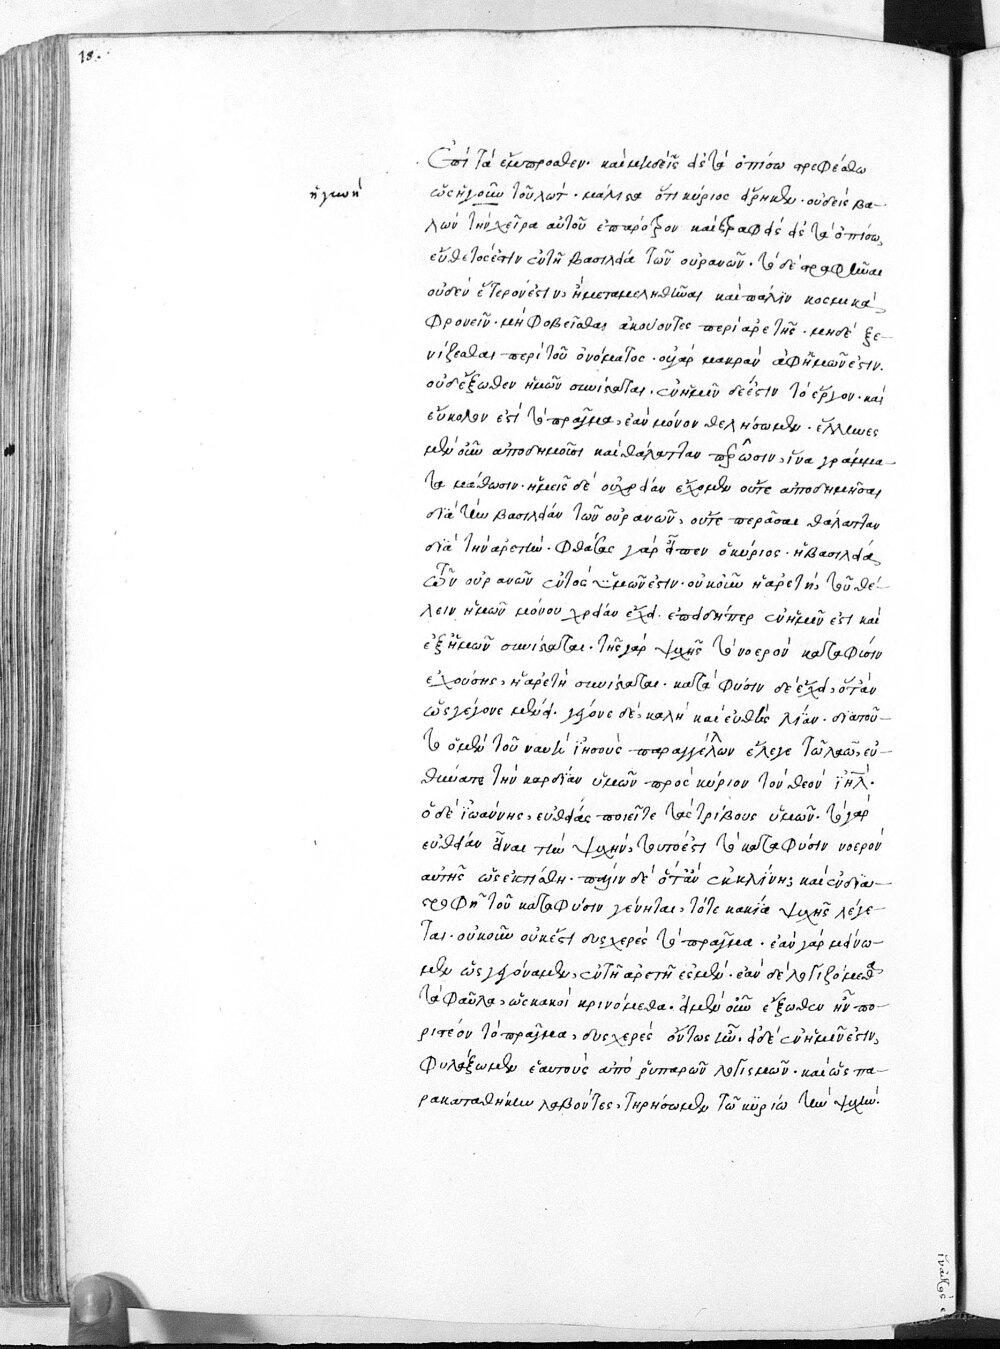 18.
Ἐπὶ τὰ ἔμπροσθεν· καὶ μηδεὶς εἰς τὰ ὀπίσω στρεφέσθω
ἡ γυνὴ
ὡς ἡ γοῦν τοῦ λώτ· μάλιστα ὅτι κύριος εἴρηκεν· οὐδεὶς βα-
λὼν τὴν χεῖρα αὐτοῦ ἐπ' ἄροτρον καὶ στραφεὶς εἰς τὰ ὀπίσω,
εὔθετος ἐστιν ἐν τῇ βασιλεία τῶν οὐρανῶν· τὸ δὲ στραφῆναι
οὐδὲν ἕτερον ἐστιν, ἢ μεταμεληθῆναι καὶ πάλιν κοσμικὰ
φρονεῖν· μὴ φοβεῖσθαι ἀκούοντες περὶ ἀρετῆς· μηδὲ ξε-
νίζεσθαι περὶ τοῦ ὀνόματος· οὐ γὰρ μακρὰν ἀφ' ἡμῶν ἐστιν.
οὐδ' ἔξωθεν ἡμῶν συνίσταται, ἐν ἡμῖν δέ ἐστιν τὸ ἔργον· καὶ
εὔκολον ἐστὶ τὸ πρᾶγμα, ἐὰν μόνον θελήσωμεν· ἕλληνες
μὲν οὖν ἀποδημοῦσι καὶ θάλατταν περῶσιν, ἵνα γράμμα-
τα μάθωσιν· ἡμεῖς δὲ οὐ χρείαν ἔχομεν οὔτε ἀποδημῆσαι
διὰ τὴν βασιλείαν τῶν οὐρανῶν, οὔτε περᾶσαι θάλατταν
διὰ τὴν ἀρετήν· φθάσας γὰρ εἶπεν ὁ κύριος· ἡ βασιλεία
τῶν οὐρανῶν ἐντὸς ὑμῶν ἐστιν· οὐκοῦν ἡ ἀρετὴ, τοῦ θέ-
λειν ἡμῶν μόνου χρείαν ἔχει· ἐπειδήπερ ἐν ἡμῖν ἐστι καὶ
ἐξ ἡμῶν συνίσταται· τῆς γὰρ ψυχῆς τὸ νοερὸν κατὰ φύσιν
ἐχούσης, ἡ ἀρετὴ συνίσταται· κατὰ φύσιν δὲ ἔχει, ὅταν
ὡς γέγονε μένει· γέγονε δὲ, καλὴ καὶ εὐθὴς λίαν· διὰ τοῦ-
το ὁ μὲν τοῦ ναυὴ ἰησοῦς παραγγέλλων ἔλεγε τῷ λαῷ, εὐ-
θύνατε τὴν καρδίαν ὑμῶν πρὸς κύριον τὸν θεὸν ἰηλ·
ὁ δὲ ἰωάννης, εὐθείας ποιεῖτε τὰς τρίβους ὑμῶν· τὸ γὰρ
εὐθεῖαν εἶναι τὴν ψυχὴν, τοῦτό ἐστι τὸ κατὰ φύσιν νοερὸν
αὐτῆς ὡς ἐκτίσθη· πάλιν δὲ ὅταν ἐκκλίνῃ, καὶ ἐν δια-
στροφῇ τοῦ κατὰ φύσιν γένηται, τότε κακία ψυχῆς λέγε-
ται· οὐκοῦν οὐκ ἔστι δυσχερὲς τὸ πρᾶγμα· ἐὰν γὰρ μείνω-
μεν ὡς γεγόναμεν, ἐν τῇ ἀρετῇ ἐσμέν· ἐὰν δὲ λογιζόμεθα
τὰ φαῦλα, ὡς κακοὶ κρινόμεθα· εἰ μὲν οὖν ἔξωθεν ἦν πο-
ριστέον τὸ πρᾶγμα, δυσχερὲς ὄντως ἦν. εἰ δὲ ἐν ἡμῖν ἐστιν,
φυλάξωμεν ἑαυτοὺς ἀπὸ ῥυπαρῶν λογισμῶν· καὶ ὡς πα-
ρακαταθήκην λαβόντες, τηρήσωμεν τῷ κυρίῳ τὴν ψυχήν·